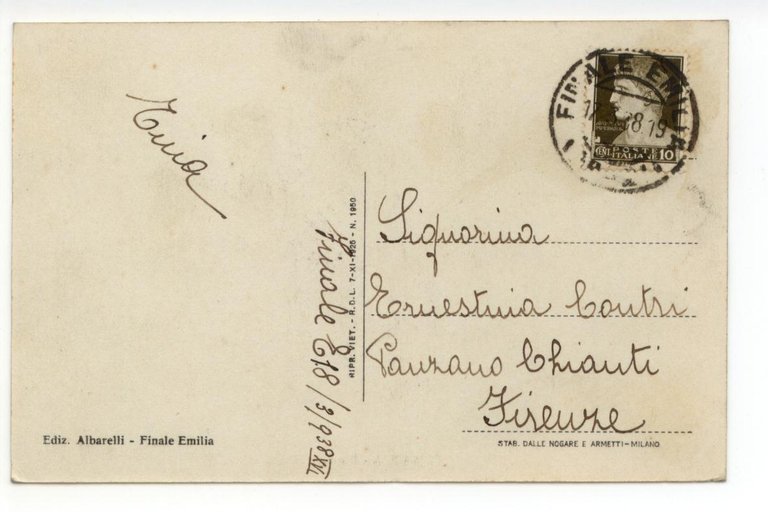 Tina
FINALE EMILIA
19
POSTE
ITALIANE
CENT. 10
Signorina
Ernestina Contri
Panzano Chianti
Firenze
Finale E 18/3/938 XVI
RIPR. VIET. - R.D.L. 7-XI-1925 - N. 1950
Ediz. Albarelli - Finale Emilia
STAB. DALLE NOGARE E ARMETTI-MILANO